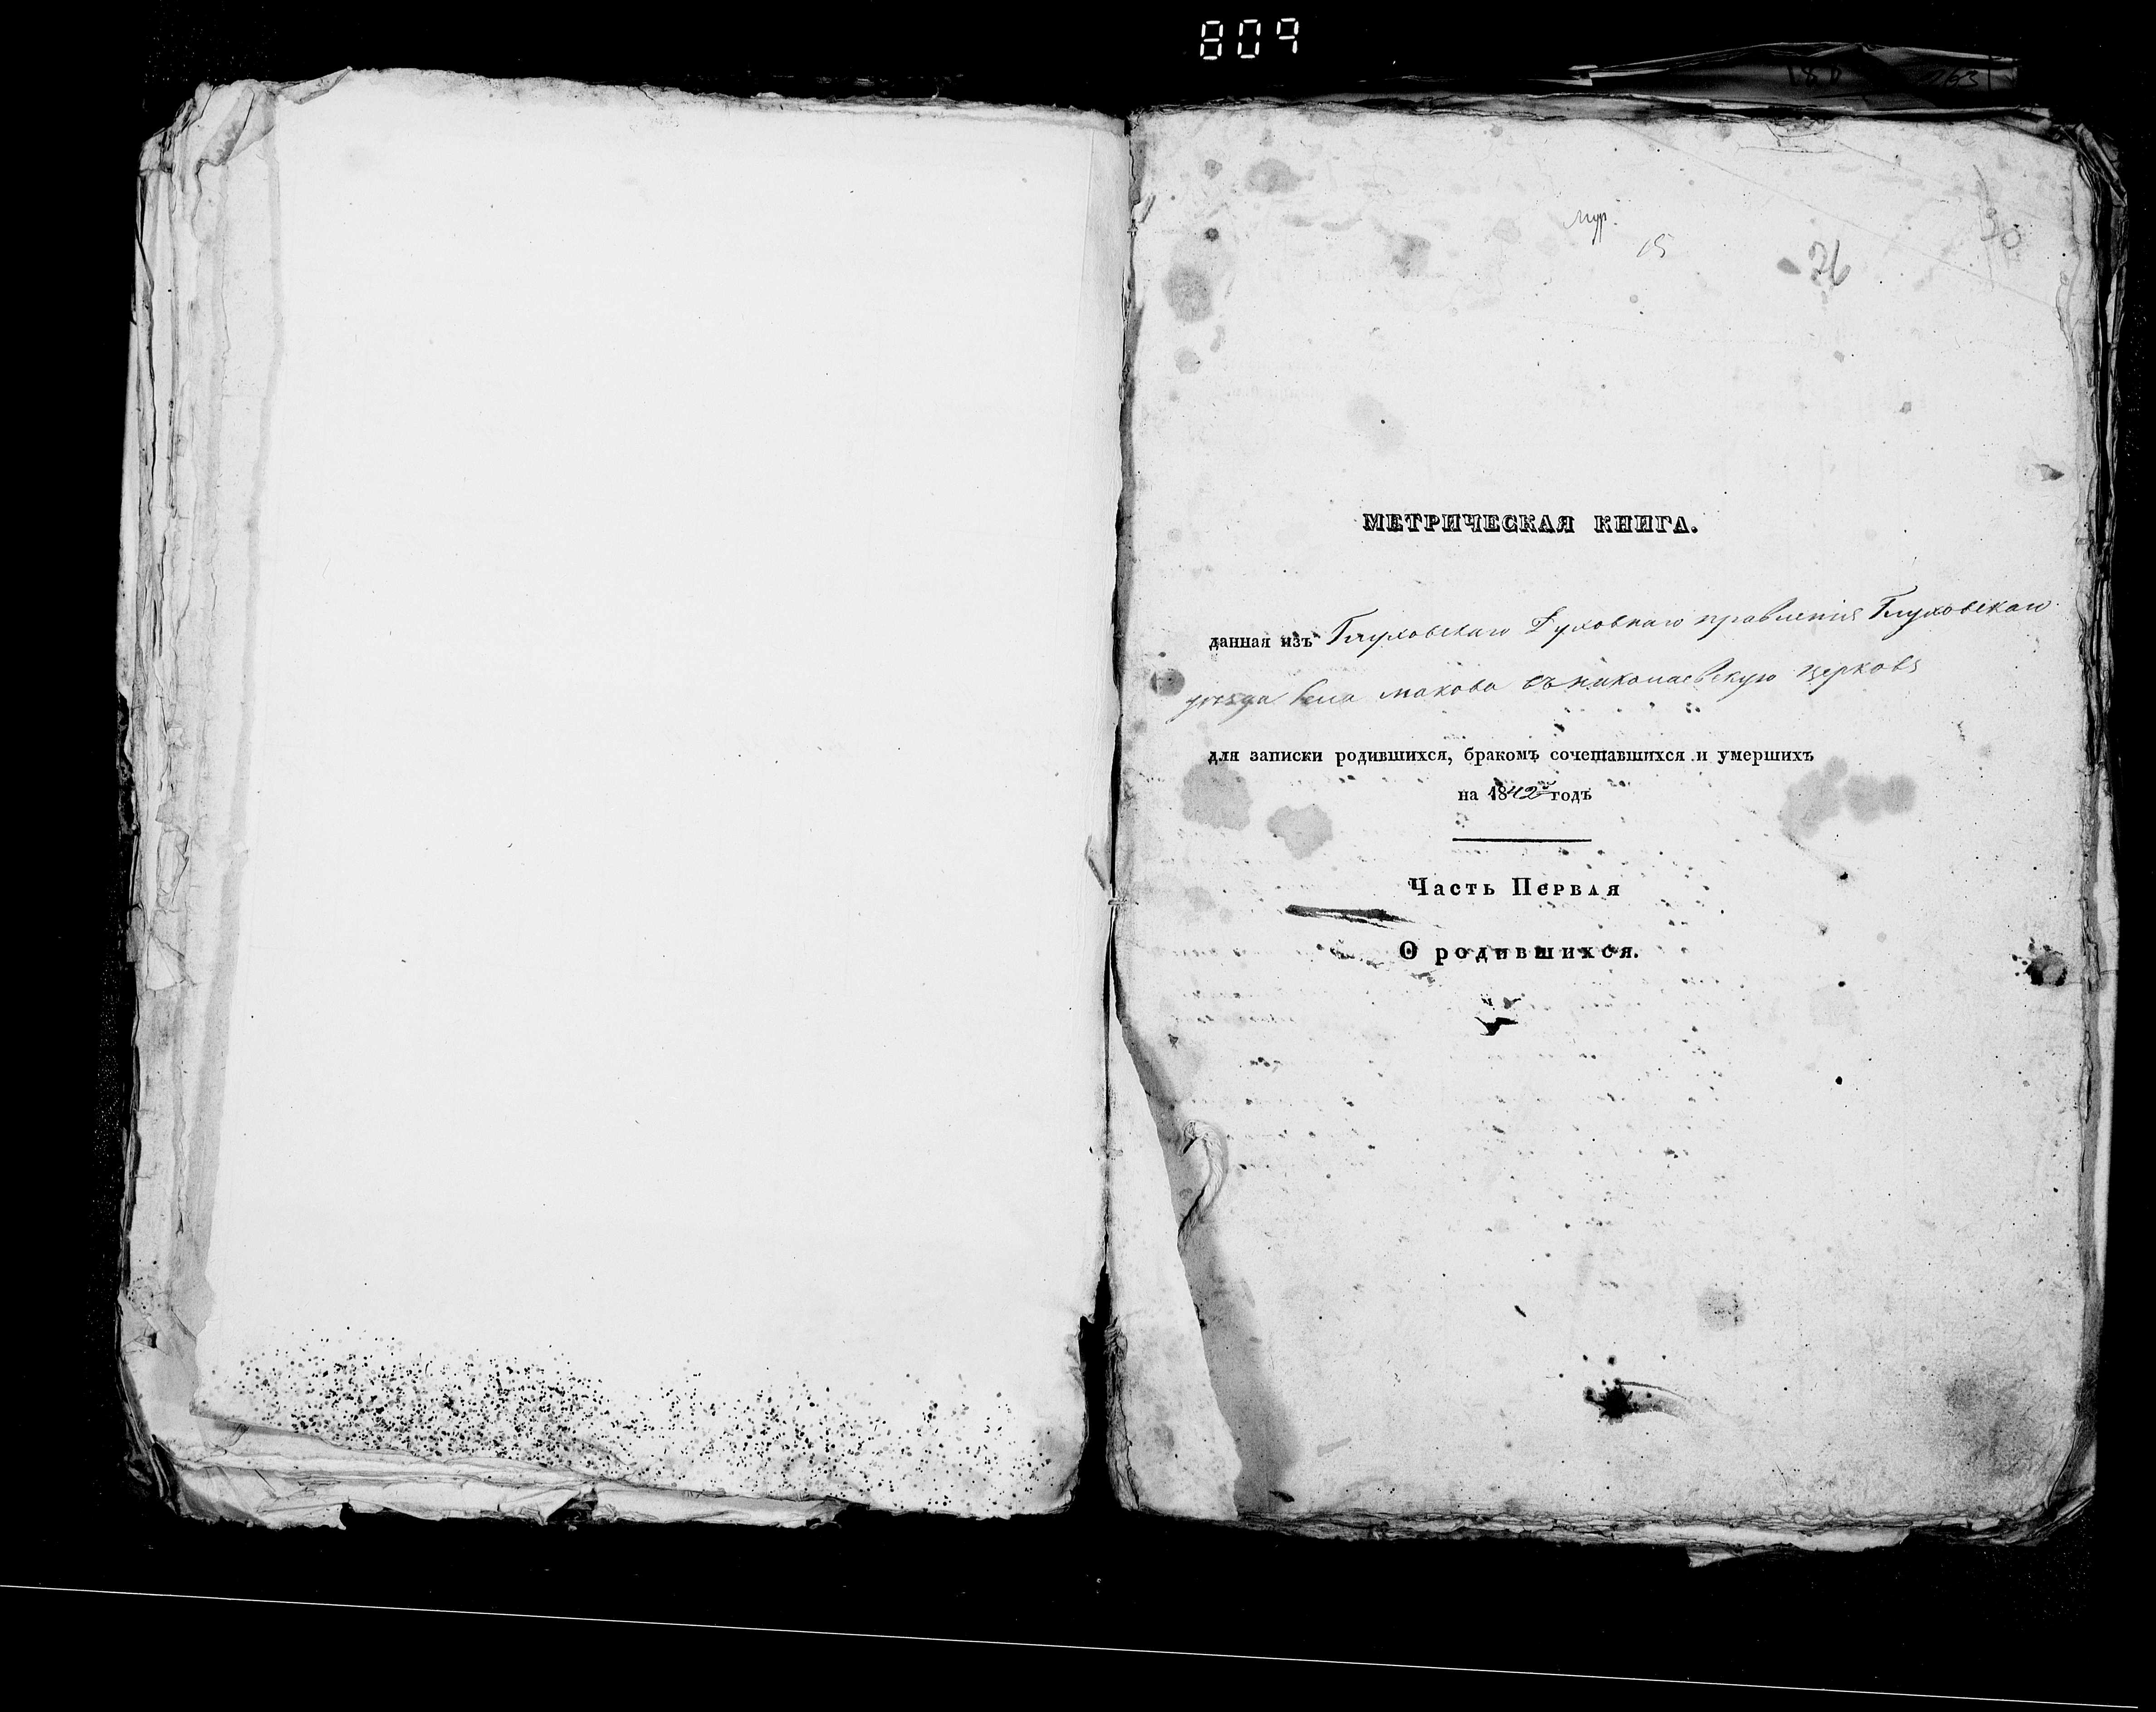 809
15
76
30
МЕТРИЧЕСКАЯ КНИГА.
данная изъ Глуховскаго Духовнаго правленія Глуховскаго
уезда села макова въ николаевскую церковь
для записки родившихся, бракомъ сочетавшихся и умершихъ
на 1842й годъ
Часть Первая
О родившихся.